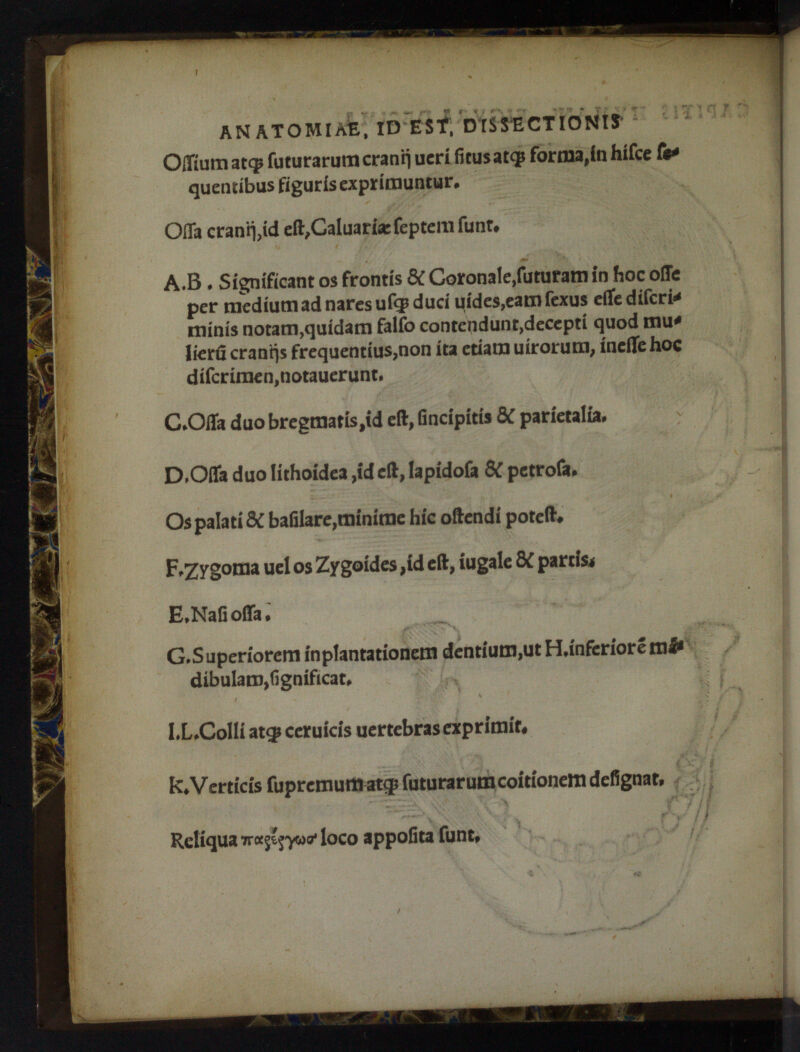 ANATOMIAE, ID EST, DISSECTIONIS
Oſſium atqꝫ ſuturarum cranij ueri ſitus atqꝫ forma, in hiſce ſe⸗
quentibus figuris exprimuntur.
Oſſa cranij, id eſt, Caluariæ ſeptem ſunt.
A.B. Significant os frontis & Coronale, ſuturam in hoc oſſe
per medium ad nares uſqꝫ duci uides, eam ſexus eſſe diſcri⸗
minis notam, quidam falſo contendunt, decepti quod mu⸗
lierū cranijs frequentius, non ita etiam uirorum, ineſſe hoc
diſcrimen, notauerunt.
C. Oſſa duo bregmatis, id eſt, ſincipitis & parietalia.
D. Oſſa duo lithoidea, id eſt, lapidoſa & petroſa.
Os palati & baſilare, minime hic oſtendi poteſt.
F. Zygoma uel os Zygoides, id eſt, iugale & partis.
E. Naſi oſſa.
G. Superiorem inplantationem dentium, ut H. inferiorē mā⸗
dibulam, ſignificat.
I.L. Colli atqꝫ ceruicis uertebras exprimit.
K. Verticis ſupremum atqꝫ ſuturarum coitionem deſignat.
Reliqua παρέργωσ loco appoſita ſunt.